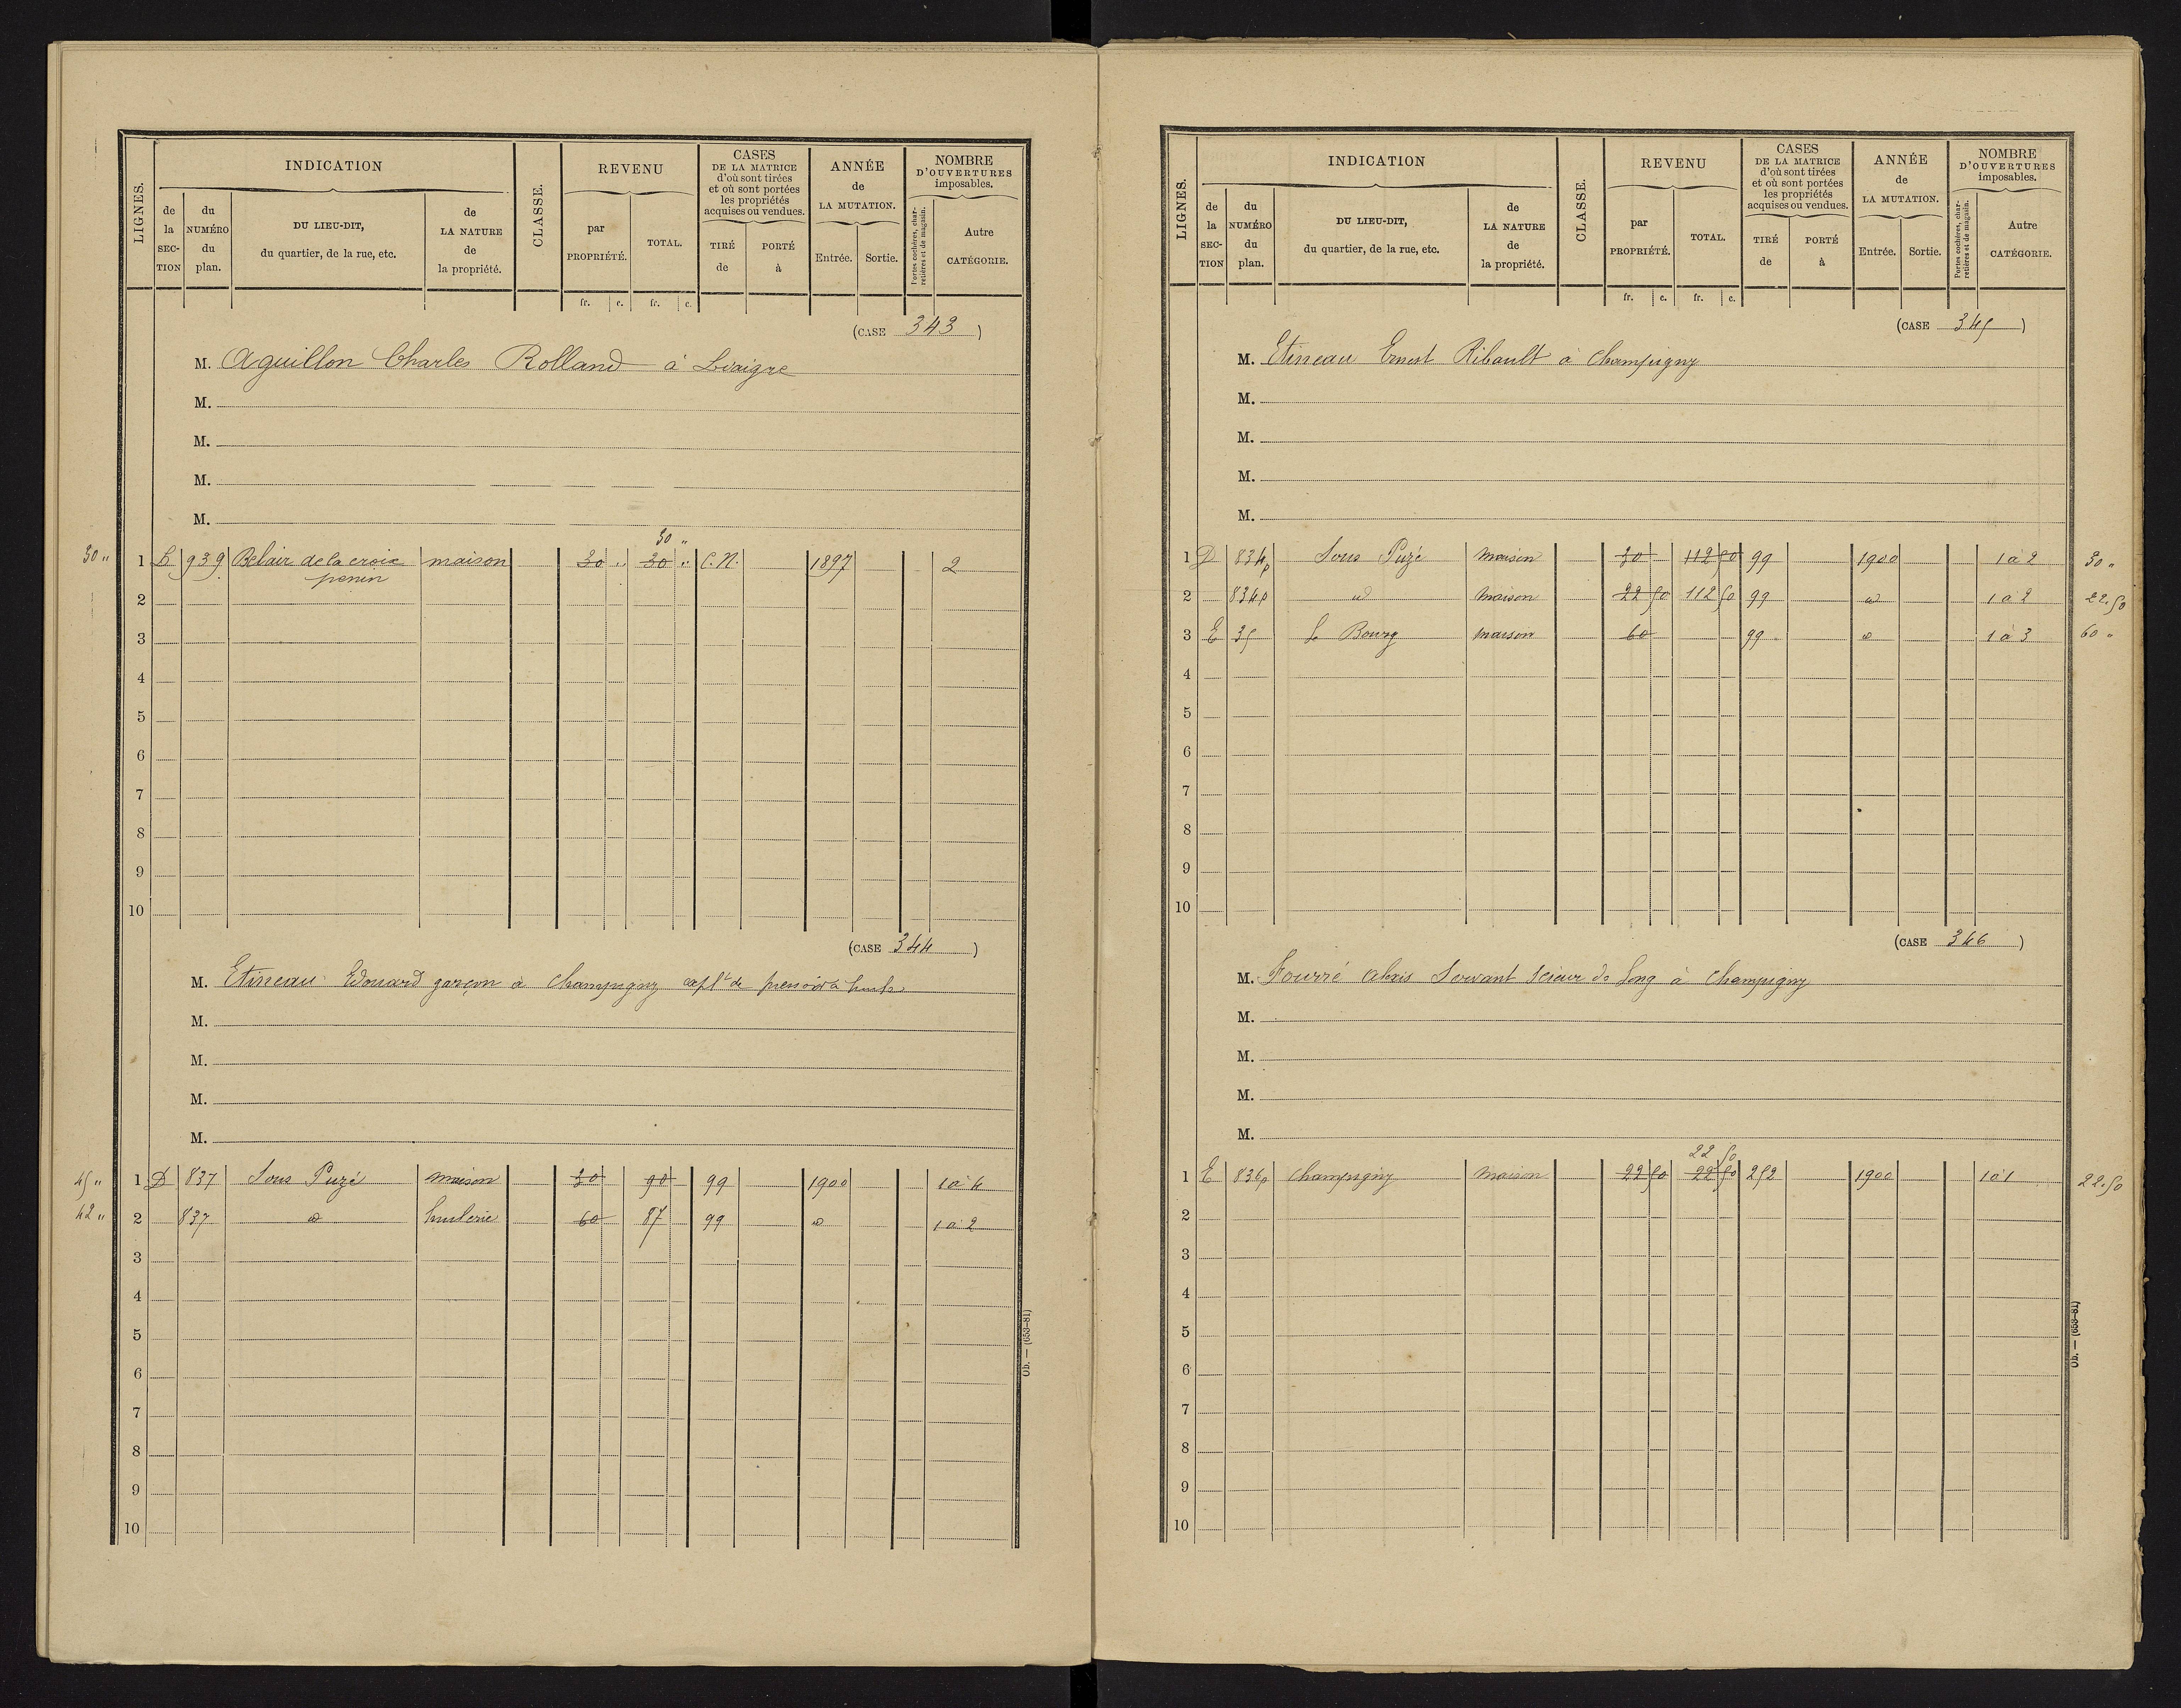 LIGNES.
INDICATION
de la SECTION
du NUMÉRO du plan.
DU LIEU-DIT, du quartier, de la rue, etc.
de LA NATURE de la propriété.
CLASSE.
REVENU
par PROPRIÉTÉ.
TOTAL.
fr. c. fr. c.
CASES DE LA MATRICE d'où sont tirées et où sont portées les propriétés acquises ou vendues.
TIRÉ de
PORTÉ à
ANNÉE de LA MUTATION.
Entrée. Sortie.
NOMBRE D'OUVERTURES imposables.
Portes cochères, charretières et de magasin.
Autre CATÉGORIE.
(CASE 343)
M. Aguillon Charles Rolland à Liaigre
M.
M.
M.
M.
30 "
30 " 1 939 Belair de la croix maison 30 " 30 " C.N. 1897 2
2
3
4
5
6
7
8
9
10
(CASE 344)
M. Etineau Edouard garçon à Champigny de pressoir à
M.
M.
M.
M.
45 " 1 D 837 Sous Puzé maison 30 90 99 1900 1 à 4
42 " 2 837 d huilerie 60 87 99 d 1 à 2
3
4
5
6
7
8
9
10
Ob. — (653-81)
LIGNES.
INDICATION
de la SECTION
du NUMÉRO du plan.
DU LIEU-DIT, du quartier, de la rue, etc.
de LA NATURE de la propriété.
CLASSE.
REVENU
par PROPRIÉTÉ.
TOTAL.
fr. c. fr. c.
CASES DE LA MATRICE d'où sont tirées et où sont portées les propriétés acquises ou vendues.
TIRÉ de
PORTÉ à
ANNÉE de LA MUTATION.
Entrée. Sortie.
NOMBRE D'OUVERTURES imposables.
Portes cochères, charretières et de magasin.
Autre CATÉGORIE.
(CASE 345)
M. Etineau Ernest Ribault à Champigny
M.
M.
M.
M.
1 D 834p Sous Puzé maison 30 112 50 99 1900 1 à 2 30 "
2 834p d maison 22 50 112 50 99 d 1 à 2 22.50
3 E 35 le Bourg maison 60 99 d 1 à 3 60 "
4
5
6
7
8
9
10
(CASE 346)
M. Fourré Alexis Servant scieur de long à Champigny
M.
M.
M.
M.
22 50
1 E 836p Champigny maison 22 50 22 50 252 1900 1 à 1 22.50
2
3
4
5
6
7
8
9
10
Ob. — (653-81)